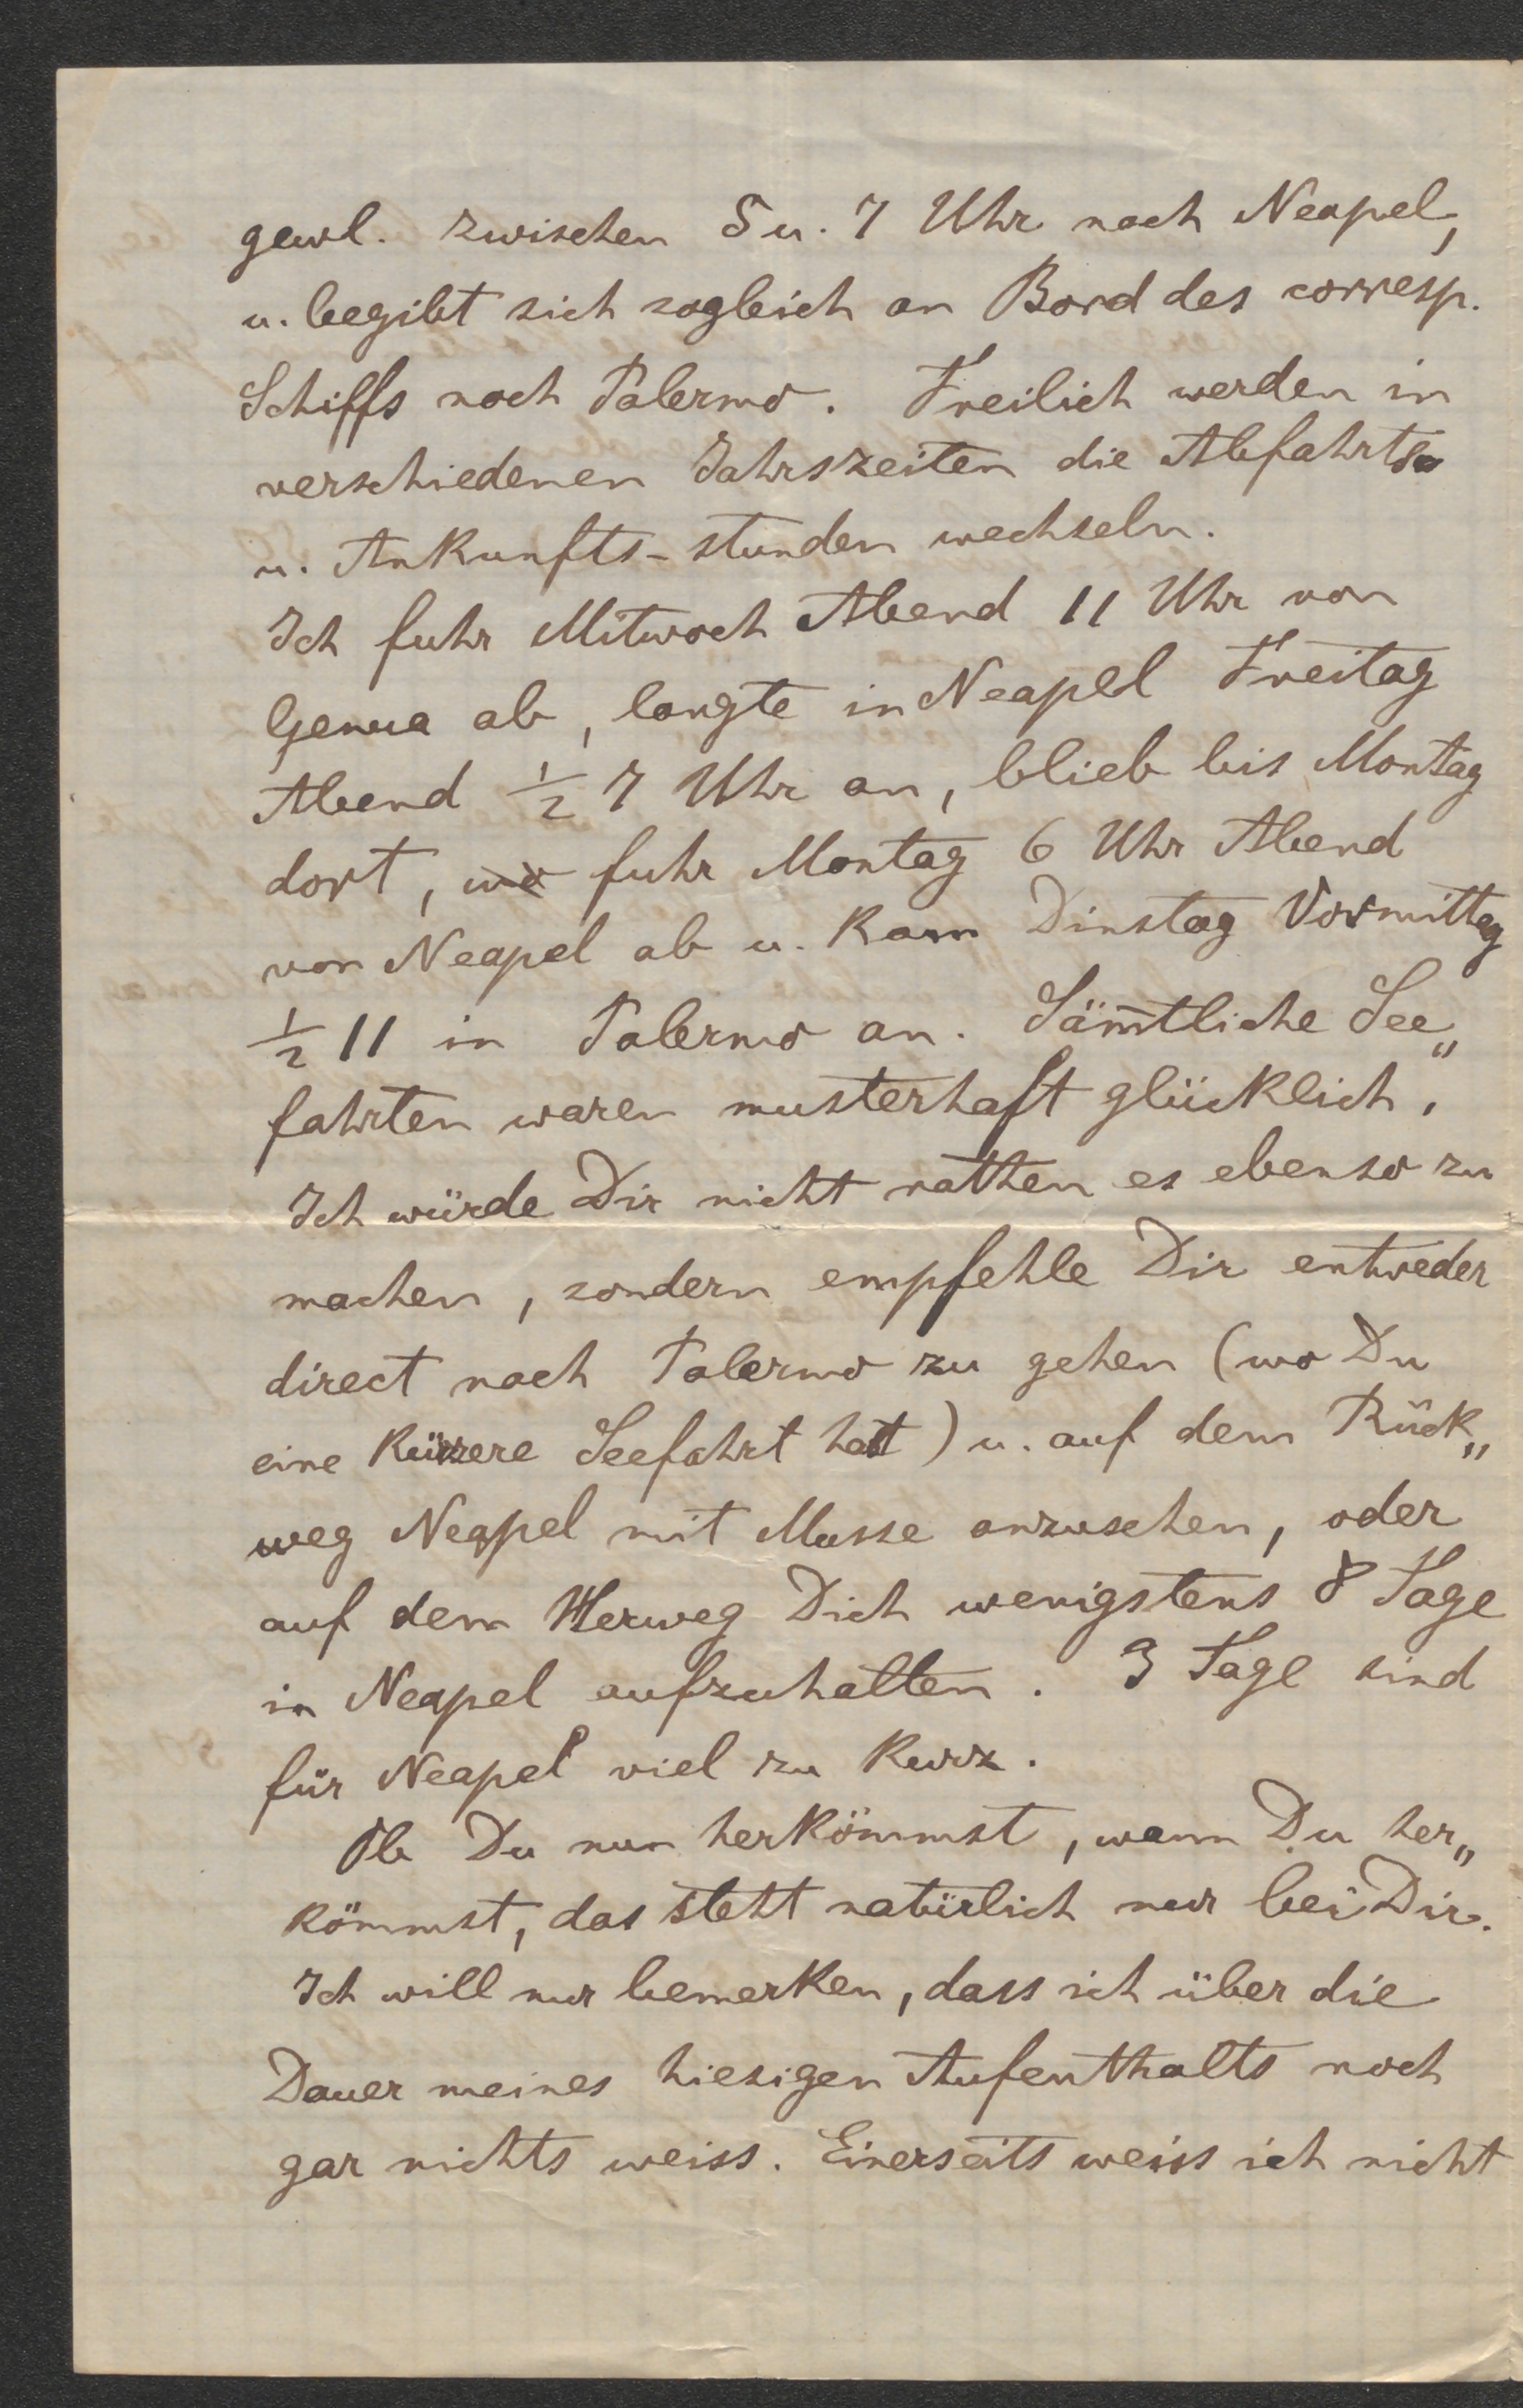 gewl. zwischen 5 u. 7 Uhr nach Neapel,
u. begibt sich sogleich an Bord des corresp.
Schiffs nach Palermo. Freilich werden in
verschiedenen Jahrszeiten die Abfahrts-
u. Ankunfts-stunden wechseln.
Ich fuhr Mitwoch Abend 11 Uhr von
Genua ab, langte in Neapel Freitag
Abend ½ 7 Uhr an, blieb bis Montag
dort, fuhr Montag 6 Uhr Abend
von Neapel ab u. kam Dinstag Vormittag
½ 11 in Palermo an. Säm̄tliche See„
fahrten waren musterhaft glücklich.
Ich würde Dir nicht rathen es ebenso zu
machen, sondern empfehle Dir entweder
direct nach Palermo zu gehen (wo Du
eine kürzere Seefahrt hast) u. auf dem Rück„
weg Neapel mit Musse anzusehen, oder
auf dem Herweg Dich wenigstens 8 Tage
in Neapel aufzuhalten. 3 Tage sind
für Neapel viel zu kurz.
Ob Du nun herkömmst, wann Du her„
kömmst, das steht natürlich nur bei Dir.
Ich will nur bemerken, dass ich über die
Dauer meines hiesigen Aufenthalts noch
gar nichts weiss. Einerseits weiss ich nicht